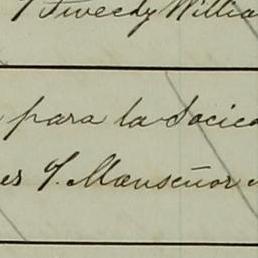 Tweedy Willia
para la Socied
es y. Manseñor